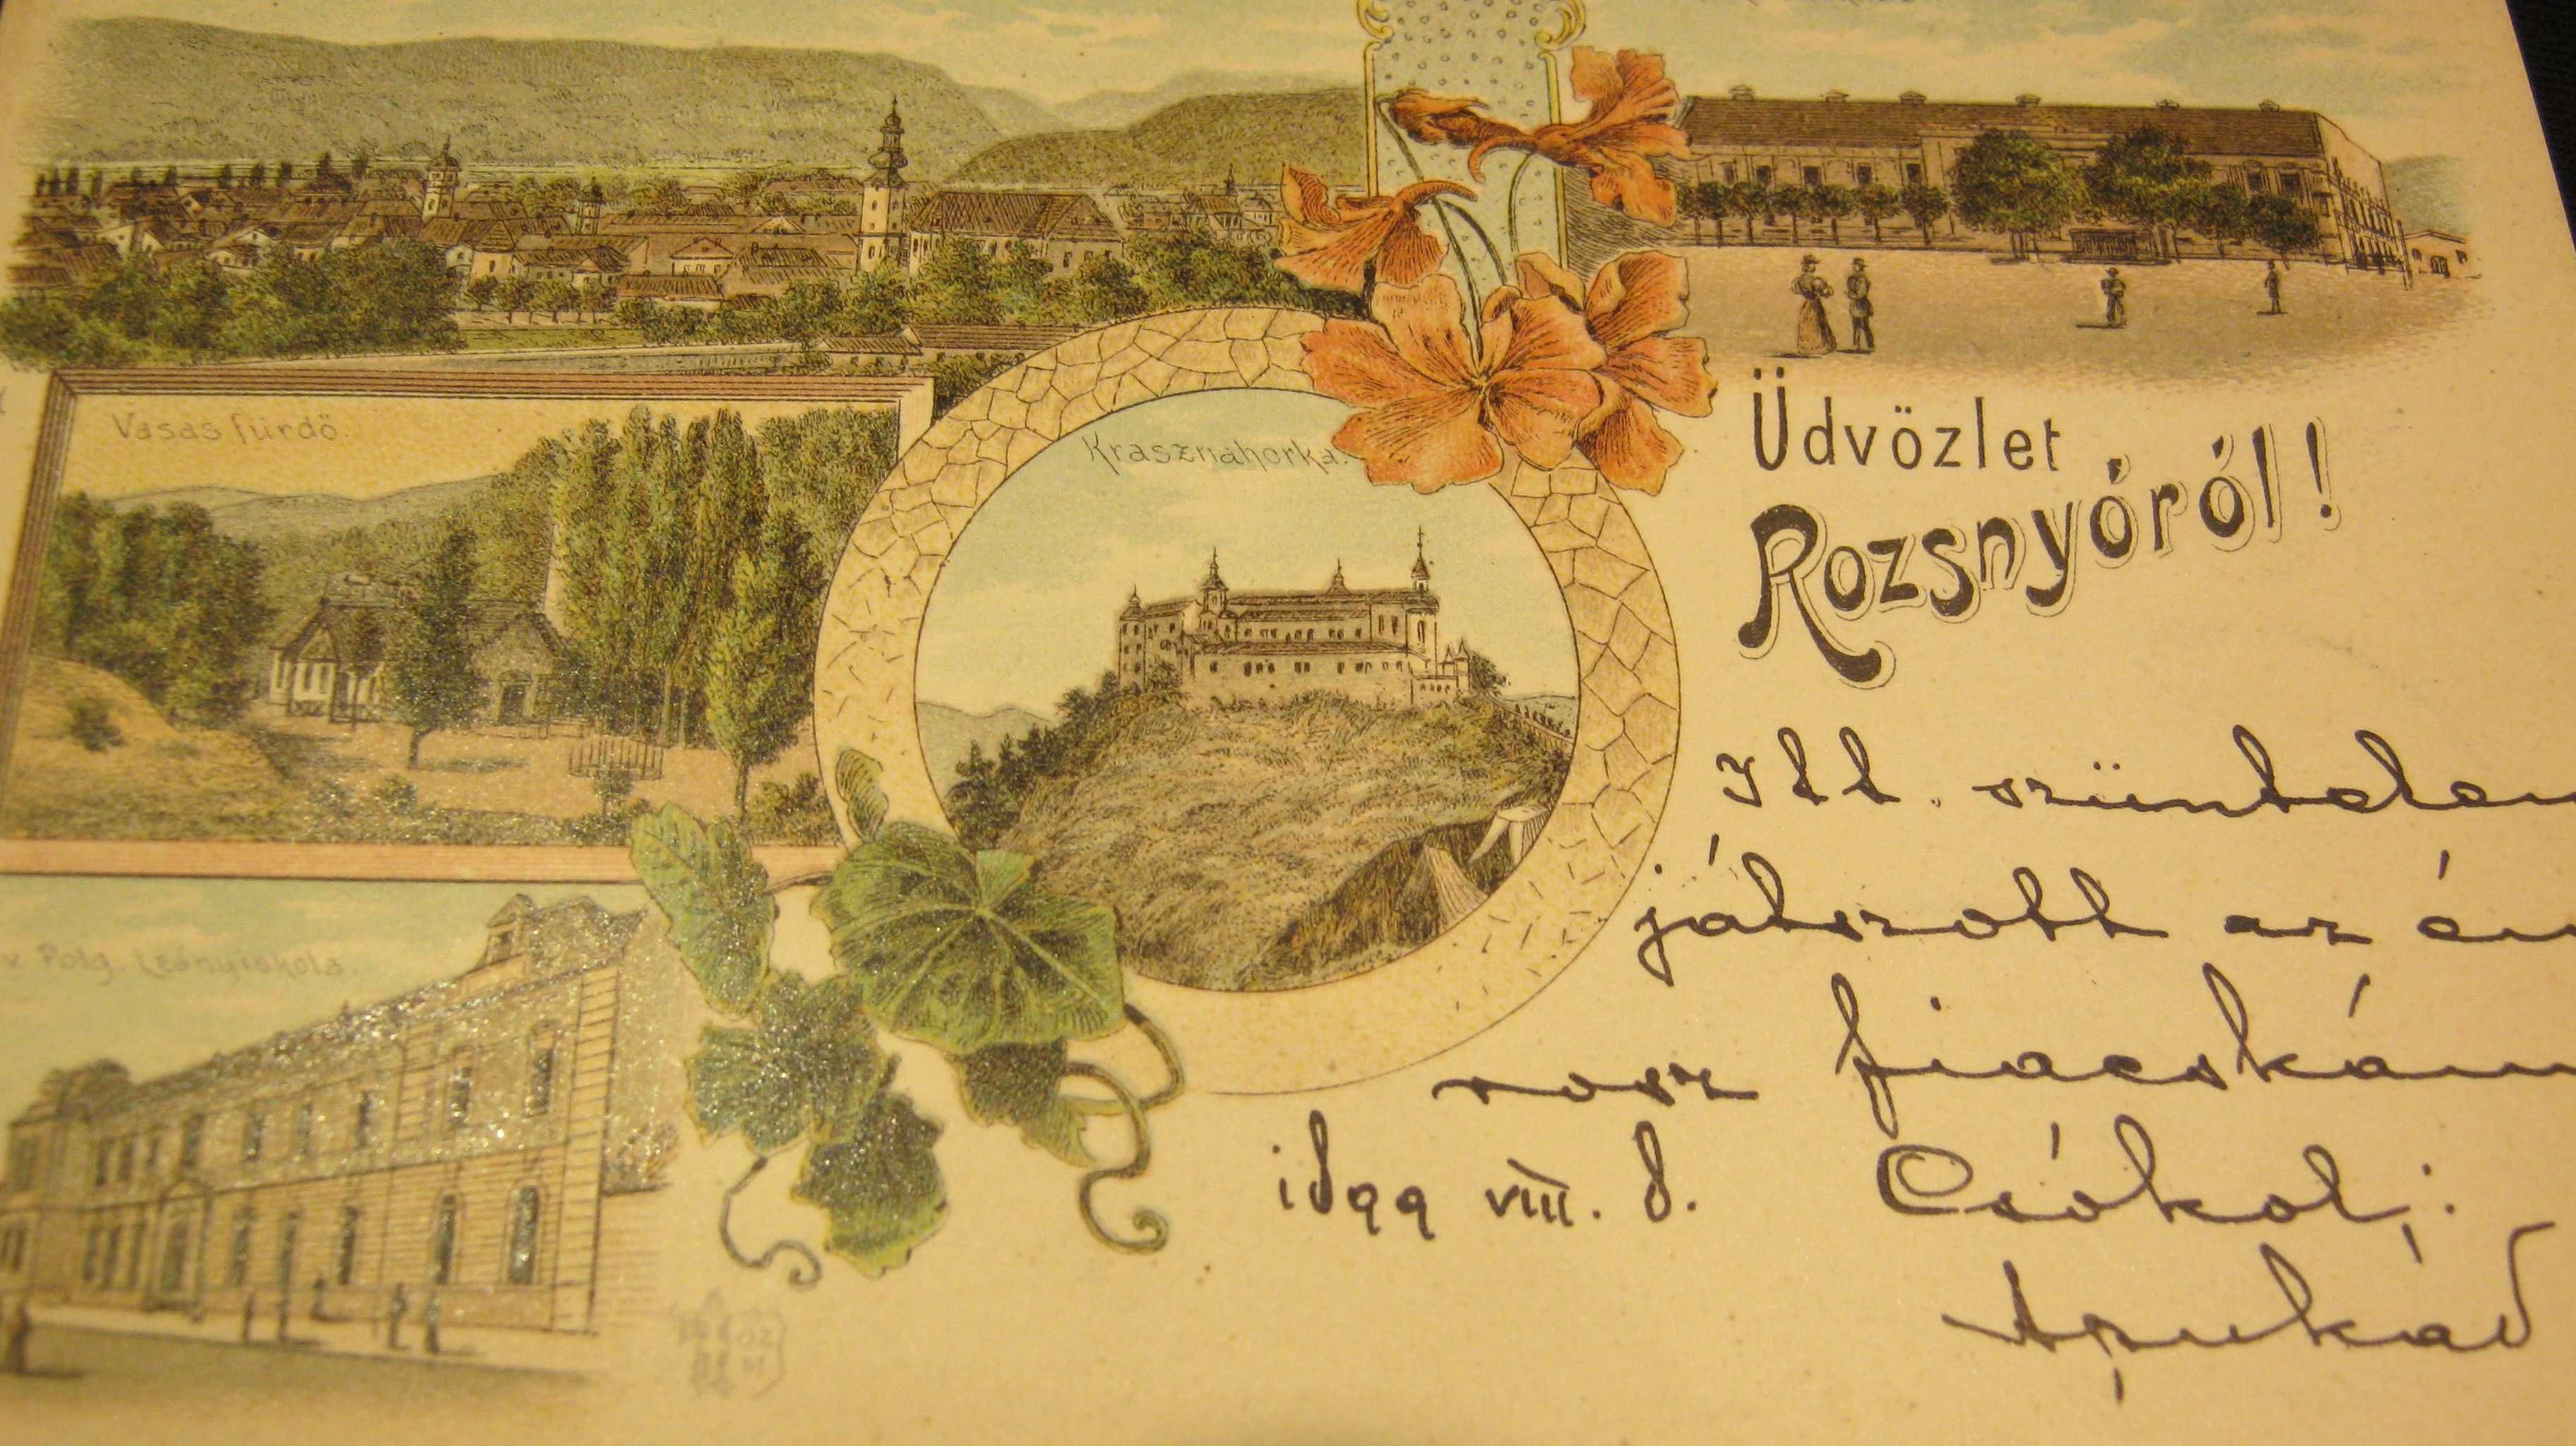 Vasas fürdő.
Krasznahorka.
Üdvözlet
Rozsnyóról!
v. Polg. Leányiskola.
Itt szüntelen
játszott az én
rosz fiacskám
1899 VIII. 8. Csókol:
Apukád